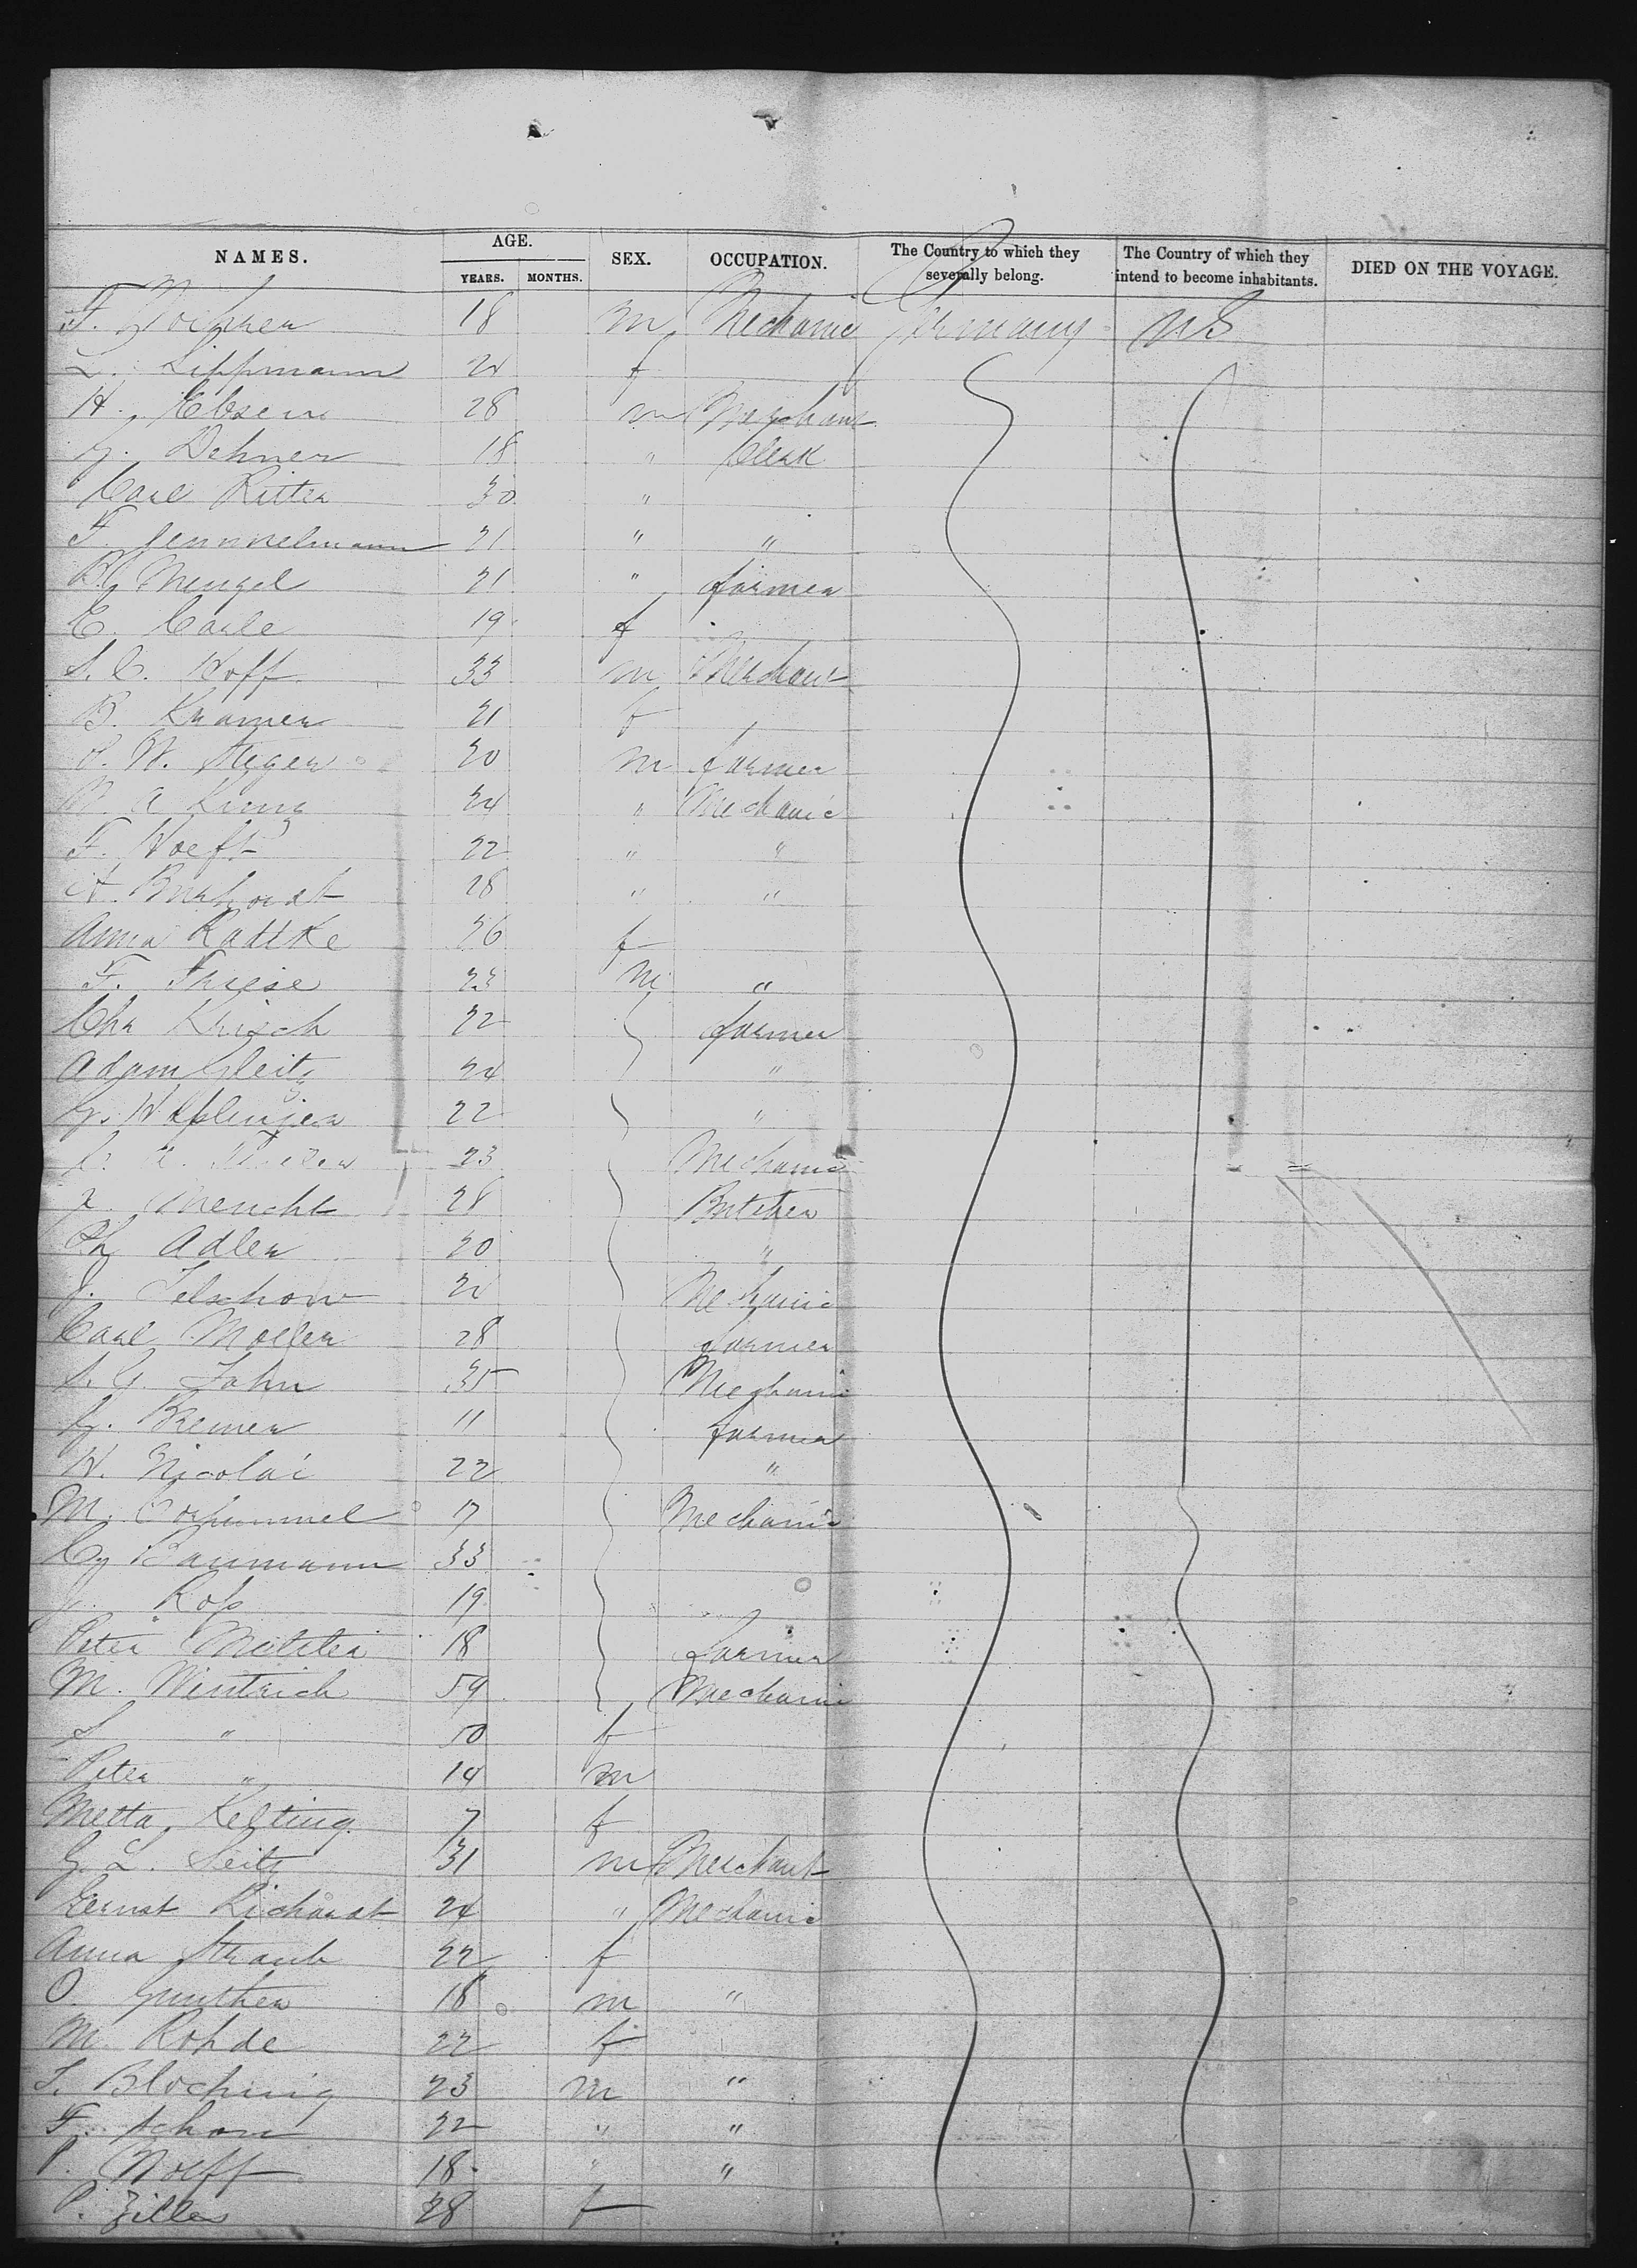 NAMES. AGE. SEX. OCCUPATION. The Country to which they severally belong. The Country of which they intend to become inhabitants. DIED ON THE VOYAGE.
YEARS. MONTHS.
F. 18 m Mechanic Germany US
L. Lippmann f
H. Ebsen 28 m Merchant
G. Dehner 18 " Clerk
Carl Ritter 30 "
F. 21 " "
Mengel 21 " farmer
E. Carle 19 f
S. C. Hoff 33 m Merchant
B. Kramer 21 f
W. Steger 20 m farmer
A 24 " Mechanic
F. Hoeft 22 " "
A. Burhardt 28 " "
Anna Radtke 26 f
F. Thiese 23 m "
Chr 22 farmer
Adam Seitz 24 "
G. 22 "
23 Mechanic
Mencht 28 Butcher
Ph Adler 20 "
J. Telschow Mechanic
Carl Moller 28 farmer
S. G. John 35 Mechanic
G. Bremer 11 farmer
H. Nicolai 22 "
M. 17 Mechanic
Baumann 33
J. Roß 19
Peter 18 farmer
M. Wintrich 59 Mechanic
S " 50 f
Peter " 14 m
Metta Kelting 7 f
G. L. Seitz 31 m Merchant
Ernst Richardt 24 " Mechanic
Anna Straub 22 f
O. Gunther 18 m "
M. Rohde 22 f
23 m "
F. Schon 22 " "
P. Wolff 18 " "
P. Ziller 28 f